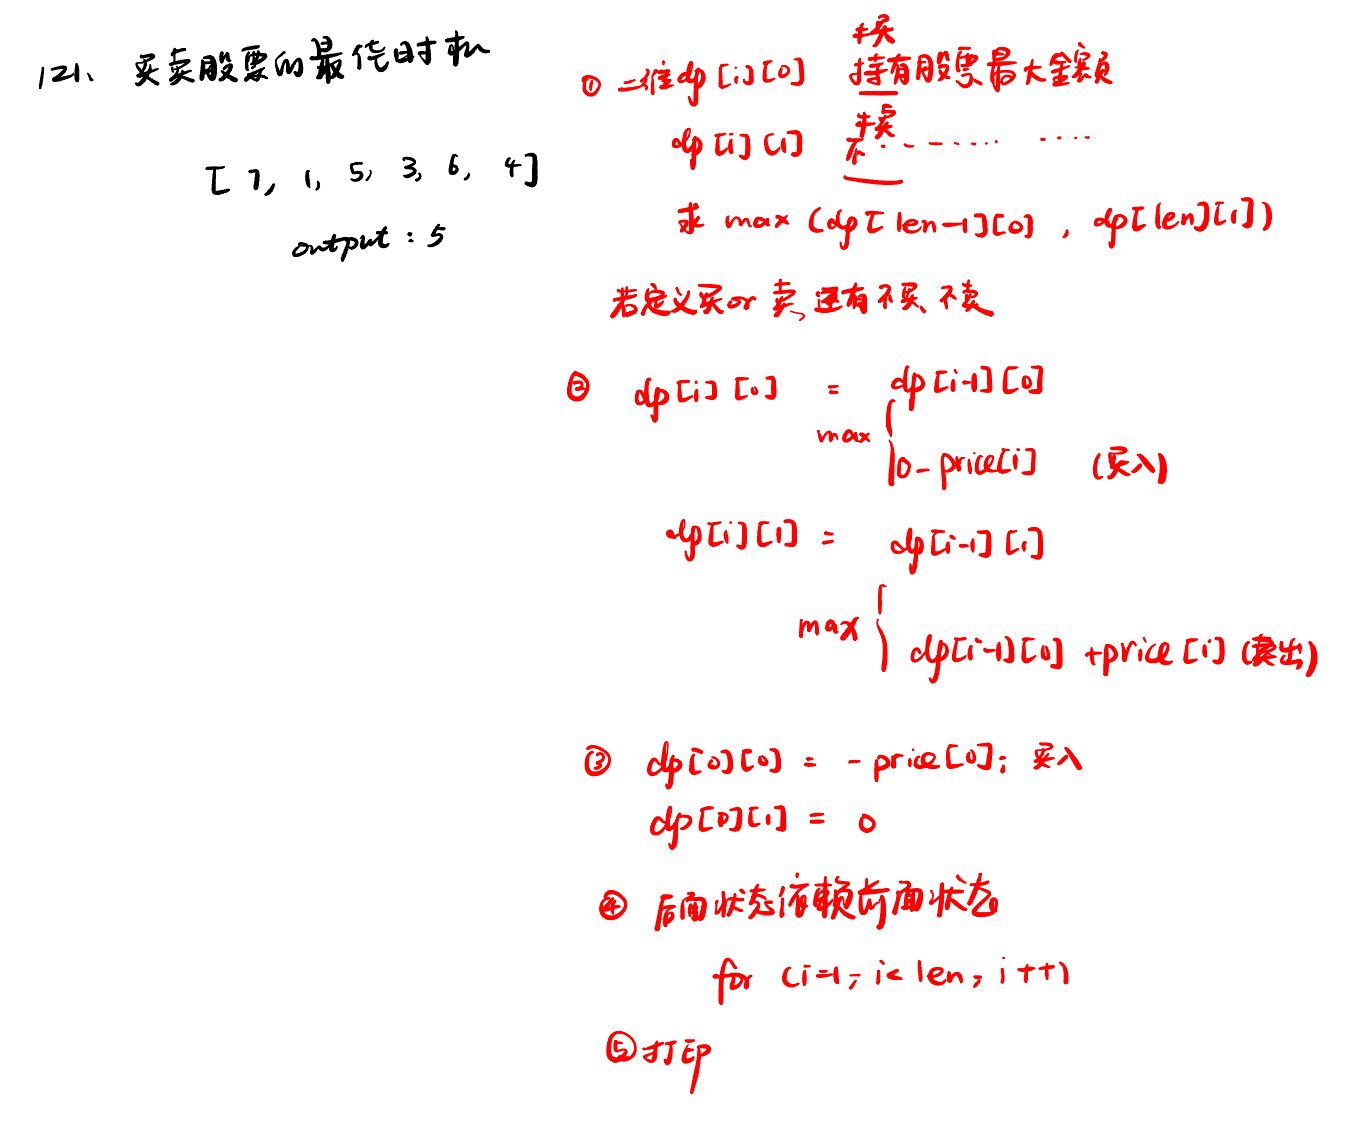 121、买卖股票的最佳时机
[7, 1, 5, 3, 6, 4]
output : 5
① 二维dp[i][0] 持有股票最大金额
dp[i][1] 不 ········ ····
求 max (dp[len-1][0] , dp[len][1])
若定义买or 卖, 还有不买, 不卖
② dp[i][0] = dp[i-1][0]
max
0-price[i] (买入)
dp[i][1] = dp[i-1][1]
max
dp[i-1][0] +price[i] (卖出)
③ dp[0][0] = -price[0]; 买入
dp[0][1] = 0
④ 后面状态依赖前面状态
for (i=1; i< len; i++)
⑤打印